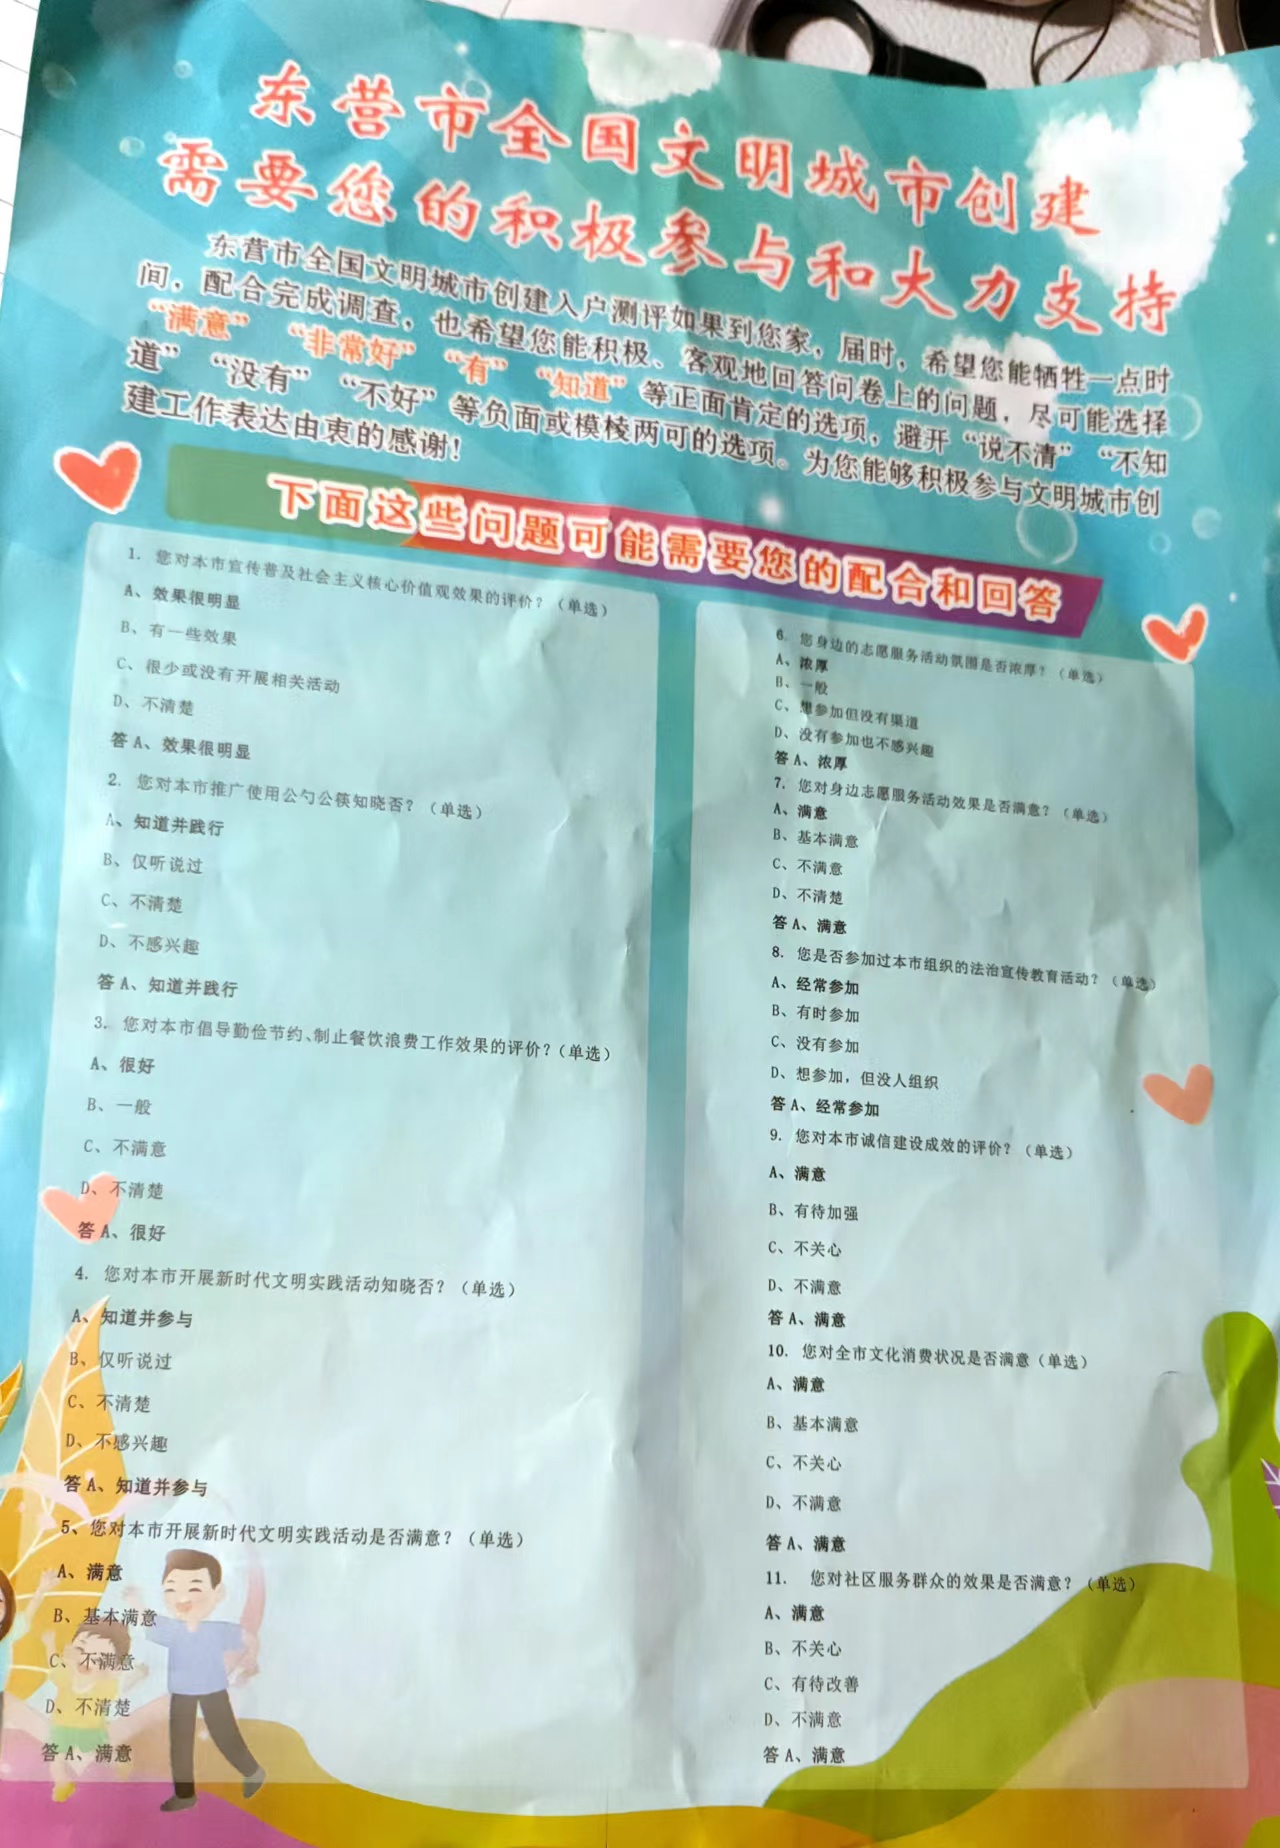 东营市全国文明城市创建
需要您的积极参与和大力支持
东营市全国文明城市创建入户测评如果到您家，届时，希望您能牺牲一点时
间，配合完成调查，也希望您能积极、客观地回答问卷上的问题，尽可能选择
“满意”“非常好”“有”“知道”等正面肯定的选项，避开“说不清”“不知
道”“没有”“不好”等负面或模棱两可的选项。为您能够积极参与文明城市创
建工作表达由衷的感谢！
下面这些问题可能需要您的配合和回答
1. 您对本市宣传普及社会主义核心价值观效果的评价？（单选）
A、效果很明显
B、有一些效果
C、很少或没有开展相关活动
D、不清楚
答 A、效果很明显
2. 您对本市推广使用公勺公筷知晓否？（单选）
A、知道并践行
B、仅听说过
C、不清楚
D、不感兴趣
答 A、知道并践行
3. 您对本市倡导勤俭节约、制止餐饮浪费工作效果的评价？（单选）
A、很好
B、一般
C、不满意
D、不清楚
答 A、很好
4. 您对本市开展新时代文明实践活动知晓否？（单选）
A、知道并参与
B、仅听说过
C、不清楚
D、不感兴趣
答 A、知道并参与
5、您对本市开展新时代文明实践活动是否满意？（单选）
A、满意
B、基本满意
C、不满意
D、不清楚
答 A、满意
6. 您身边的志愿服务活动氛围是否浓厚？（单选）
A、浓厚
B、一般
C、想参加但没有渠道
D、没有参加也不感兴趣
答 A、浓厚
7. 您对身边志愿服务活动效果是否满意？（单选）
A、满意
B、基本满意
C、不满意
D、不清楚
答 A、满意
8. 您是否参加过本市组织的法治宣传教育活动？（单选）
A、经常参加
B、有时参加
C、没有参加
D、想参加，但没人组织
答 A、经常参加
9. 您对本市诚信建设成效的评价？（单选）
A、满意
B、有待加强
C、不关心
D、不满意
答 A、满意
10. 您对全市文化消费状况是否满意（单选）
A、满意
B、基本满意
C、不关心
D、不满意
答 A、满意
11. 您对社区服务群众的效果是否满意？（单选）
A、满意
B、不关心
C、有待改善
D、不满意
答 A、满意